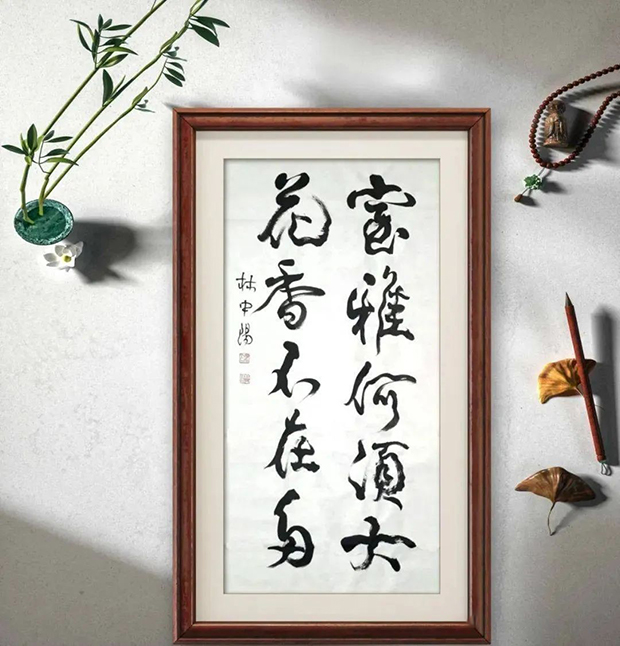 室雅何須大
花香不在多
林中陽